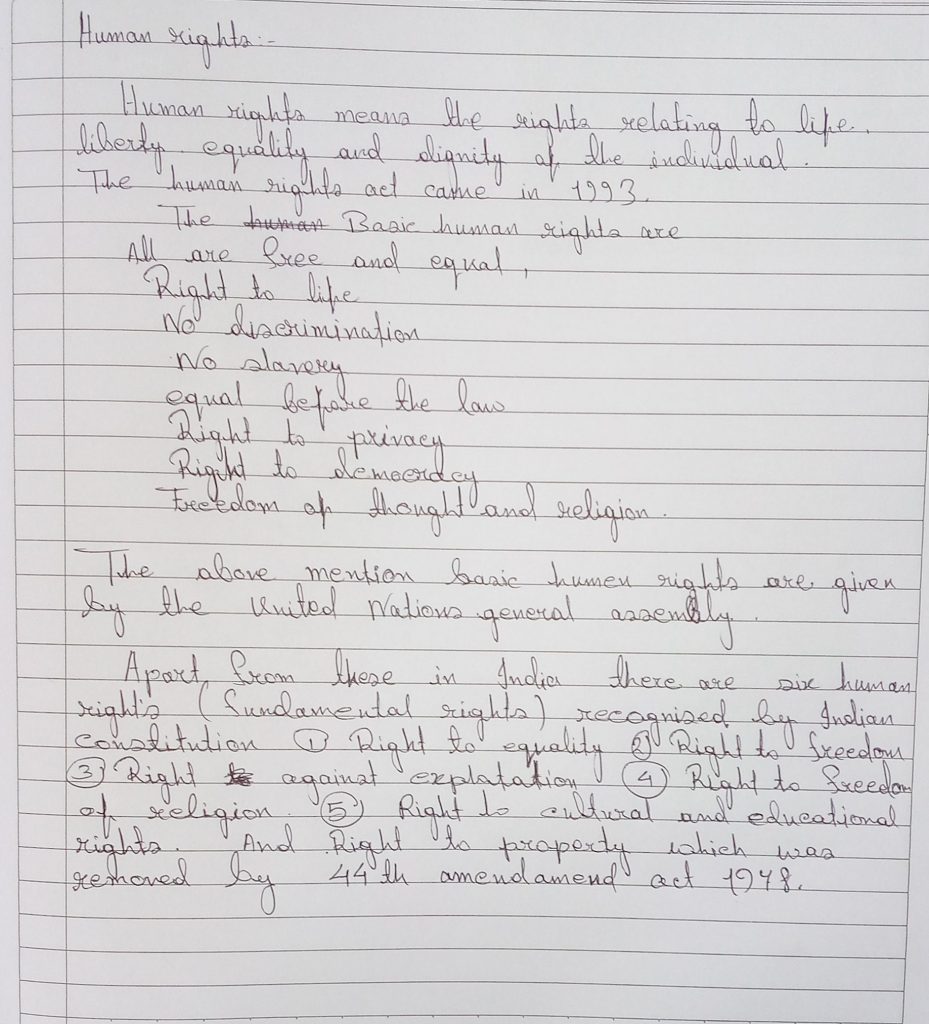 Human rights:-
Human rights means the rights relating to life.
liberty. equality and dignity of the individual.
The human rights act came in 1993.
The human Basic human rights are
All are free and equal,
Right to life
No discrimination
No slavery
equal before the law
Right to privacy
Right to democrdcy
Freedom of thought and religion.
The above mention basic humen rights are given
by the United Nations general assembly.
Apart from these in India there are six human
right's (fundamental rights) recognised by Indian
constitution ① Right to equality ② Right to freedom
③ Right against explatation ④ Right to freedom
of religion. ⑤ Right to cultural and educational
rights. And Right to property which was
removed by 44th amendamend act 1978.